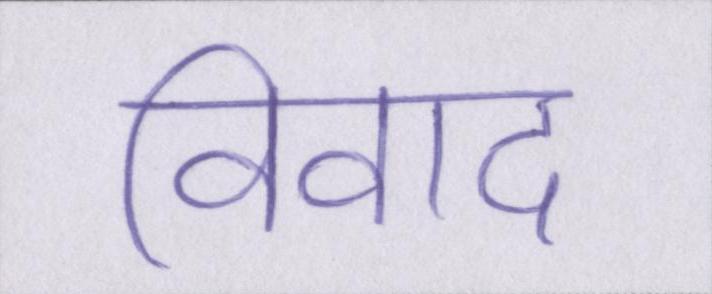 विवाद